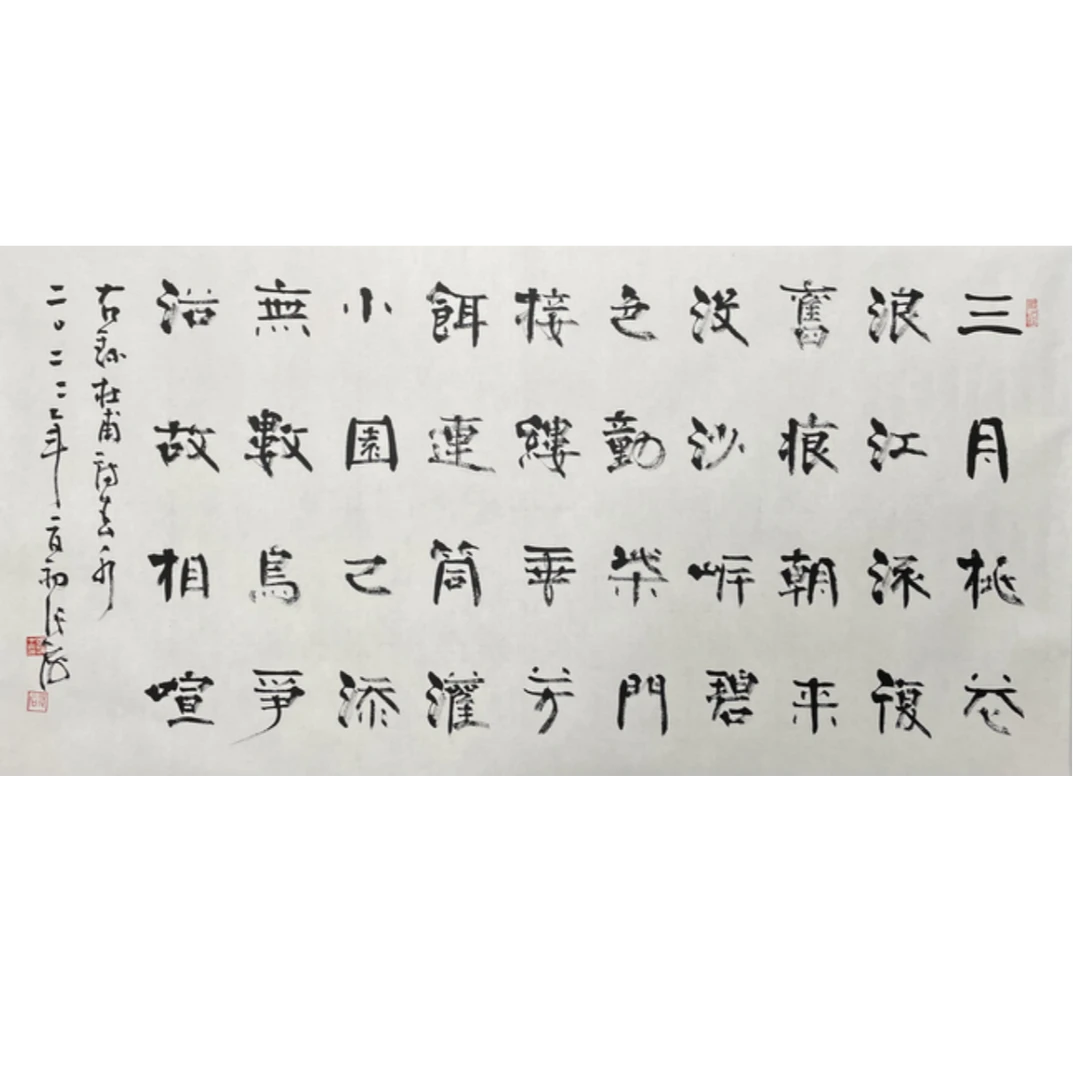 三月桃花
浪江流復
舊痕朝来
没沙岸碧
色動柴門
接縷垂芳
餌連筒灌
小園已添
無數鳥爭
浴故相喧
右錄杜甫詩春水
二〇二二年夏初